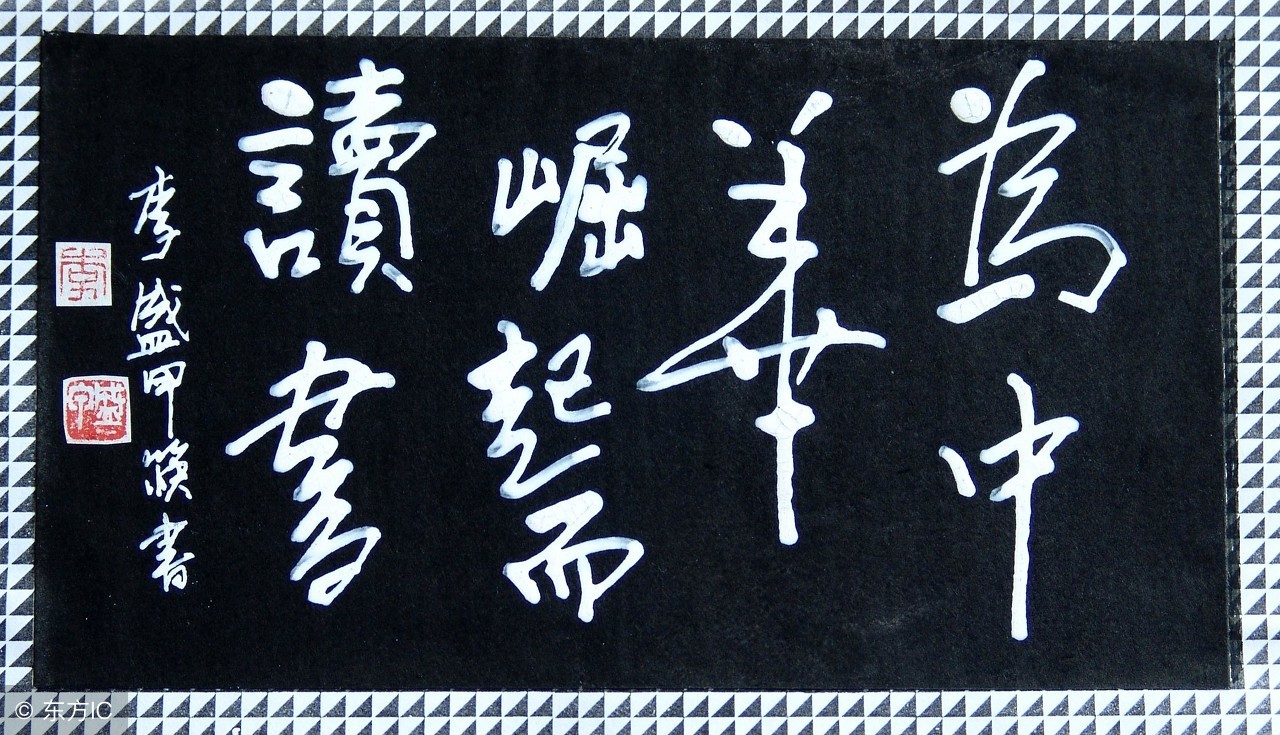 為中
華
崛起而
讀書
李盛甲筷書
李
© 东方IC